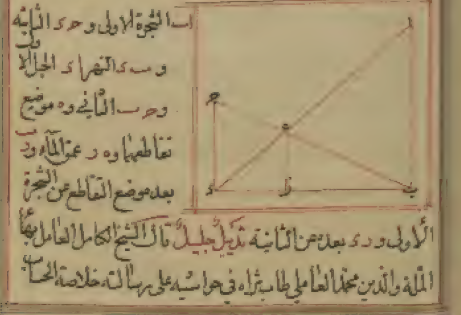 اب الشجرة الاولى و حرى الثانية
و ب ى النهر ا ى الحبل الا
ول
و حرب الثاني و ه موضع
تقاطعهما و ه ر عمق الماء و ر ب
بعد موضع التقاطع عن الشجرة
الاولى و ر ى بعده عن الثانية تذييل جليل قال الشيخ الكامل العامل بهاء
الملة والدين محمد العاملي طاب ثراه في حواشيه على رسالته خلاصة الحساب
ا
ح
ه
ى
ر
ب